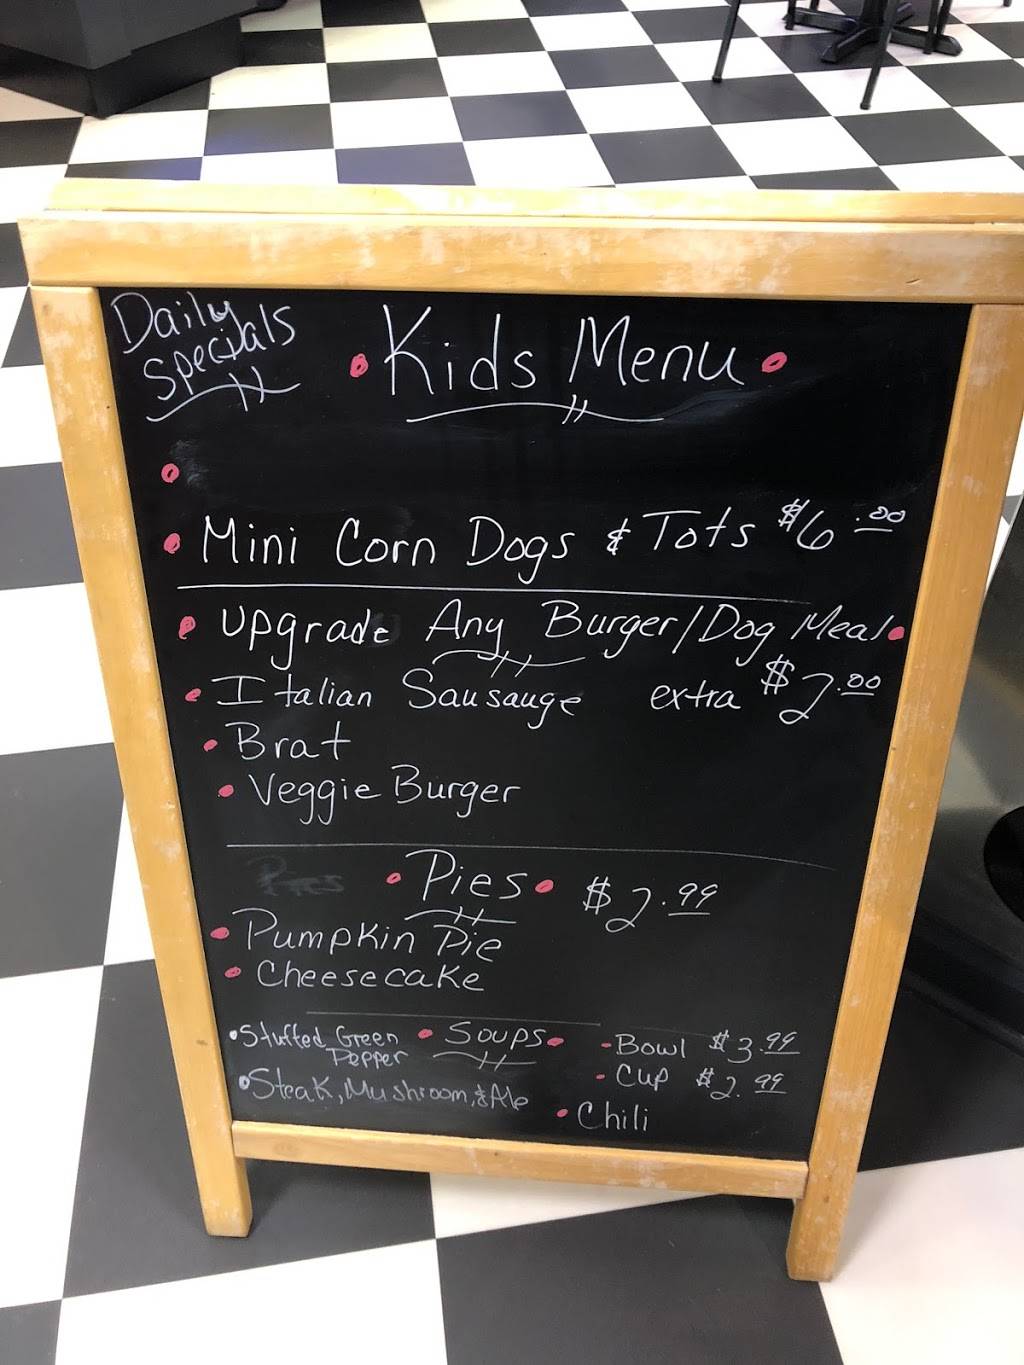 Daily
Specials
Kids Menu
Mini Corn Dogs & Tots $6.00
Upgrade Any Burger/Dog Meal
Italian Sausauge extra $2.00
Brat
Veggie Burger
Pies $2.99
Pumpkin Pie
Cheesecake
Stuffed Green
Pepper
Soups
Bowl $3.99
Cup $2.99
Steak, Mushroom, & Ale
Chili